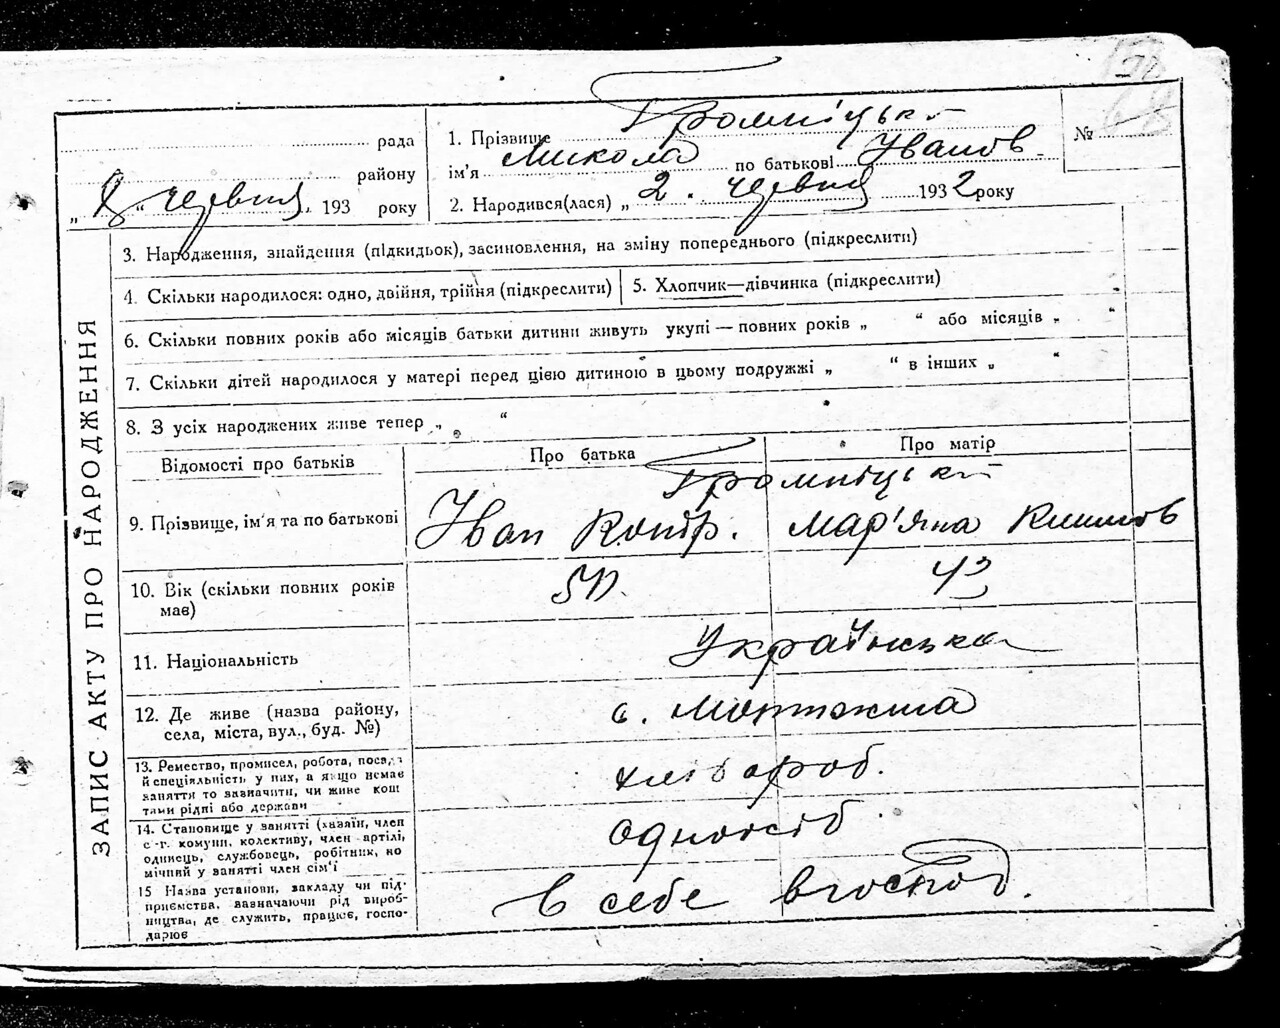 1. Прізвище Громніцькі
рада
ім'я Микола по батькові Іванов
№
району
„8“ червня 193 року
2. Народився(лася) „2“ червня 1932 року
ЗАПИС АКТУ ПРО НАРОДЖЕННЯ
3. Народження, знайдення (підкидьок), засиновлення, на зміну попереднього (підкреслити)
4. Скільки народилося: одно, двійня, трійня (підкреслити)
5. Хлопчик—дівчинка (підкреслити)
6. Скільки повних років або місяців батьки дитини живуть укупі — повних років „ “ або місяців „ “
7. Скільки дітей народилося у матері перед цією дитиною в цьому подружжі „ “ в інших „ “
8. З усіх народжених живе тепер „ “
Відомості про батьків
Про батька
Про матір
Громніцькі
9. Прізвище, ім'я та по батькові
Іван Кондр. Мар'яна Климов
10. Вік (скільки повних років має)
50. 43
11. Національність
Українська
12. Де живе (назва району,
села, міста, вул., буд. №)
с.
13. Ремество, промисел, робота, посада
й спеціяльність у них, а якщо немає
заняття то зазначити, чи живе кош
тами рідні або держави
хлібороб.
14. Становище у занятті (хазяїн, член
с.-г. комуни, колективу, член артілі,
одинець, службовець, робітник, по
мічний у занятті член сім'ї
одноосіб.
15 Назва установи, закладу чи під-
приємства, зазначаючи рід вироб-
ництва, де служить, працює, госпо-
дарює
в себе в господ.